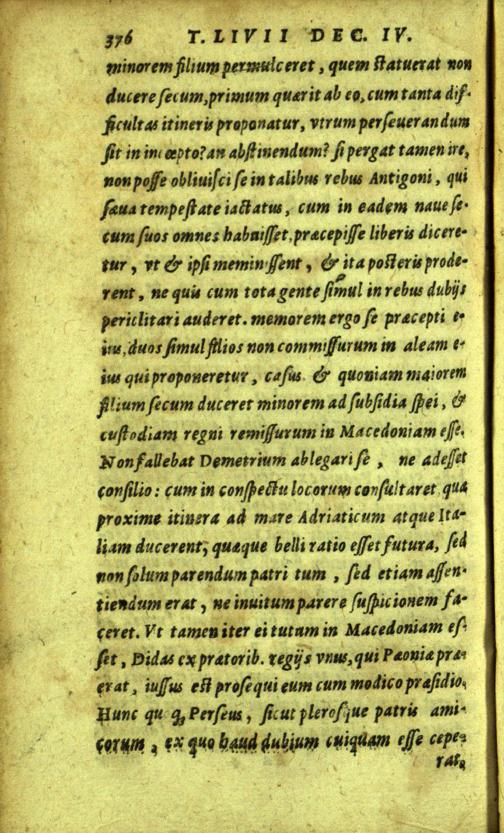 376 T. LIVII DEC. IV.
minorem filium permulceret, quem statuerat non
ducere secum, primum quærit ab eo, cum tanta dif-
ficultas itineris proponatur, vtrum perseuerandum
sit in incœpto? an abstinendum? si pergat tamen ire,
non posse obliuisci se in talibus rebus Antigoni, qui
sæua tempestate iactatus, cum in eadem naue se-
cum suos omnes habuisset, præcepisse liberis dicere-
tur, vt & ipsi meminissent, & ita posteris prode-
rent, ne quis cum tota gente simul in rebus dubijs
periclitari auderet. memorem ergo se præcepti e-
ius, duos simul filios non commissurum in aleam e-
ius qui proponeretur, casus. & quoniam maiorem
filium secum duceret minorem ad subsidia spei, &
custodiam regni remissurum in Macedoniam esse.
Non fallebat Demetrium ablegari se, ne adesset
consilio: cum in conspectu locorum consultaret qua
proxime itinera ad mare Adriaticum atque Ita-
liam ducerent, quæque belli ratio esset futura, sed
non solum parendum patri tum, sed etiam assen-
tiendum erat, ne inuitum parere suspicionem fa-
ceret. Vt tamen iter ei tutum in Macedoniam es-
set, Didas ex prætorib. regijs vnus, qui Pæoniæ præ-
erat, iussus est prosequi eum cum modico præsidio.
Hunc qu qꝫ Perseus, sicut plerosque patris ami-
corum, ex quo haud dubium cuiquam esse cepe-
rat,